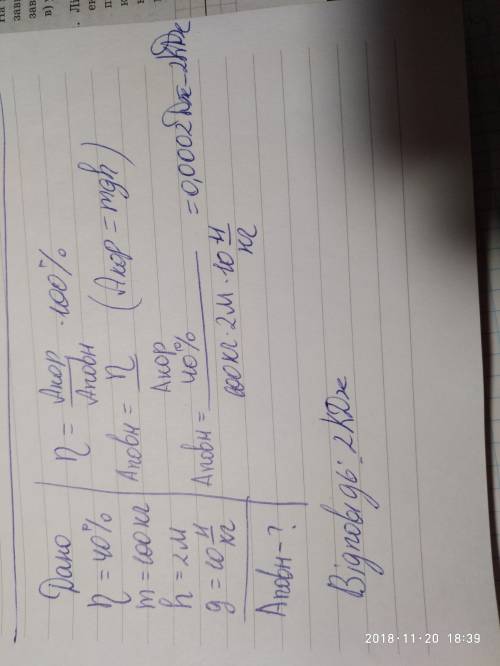 Дано
η = 40%
m = 100 кг
h = 2м
g = 10 Н/кг
Aповн - ?
η = Aкор/Aповн · 100%
Aповн = Aкор/η (Aкор = mgh)
Aповн = 40%/100 кг · 2м · 10 Н/кг = 0,0002Дж - 2КДж
Відповідь: 2КДж
2018-11-20 18:39